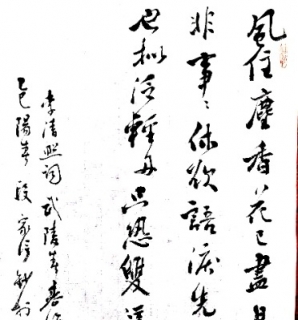 風住塵香花已盡日
非事事休欲語淚先
也擬泛輕舟只恐雙溪
李清照詞武陵春
乙巳陽春段家